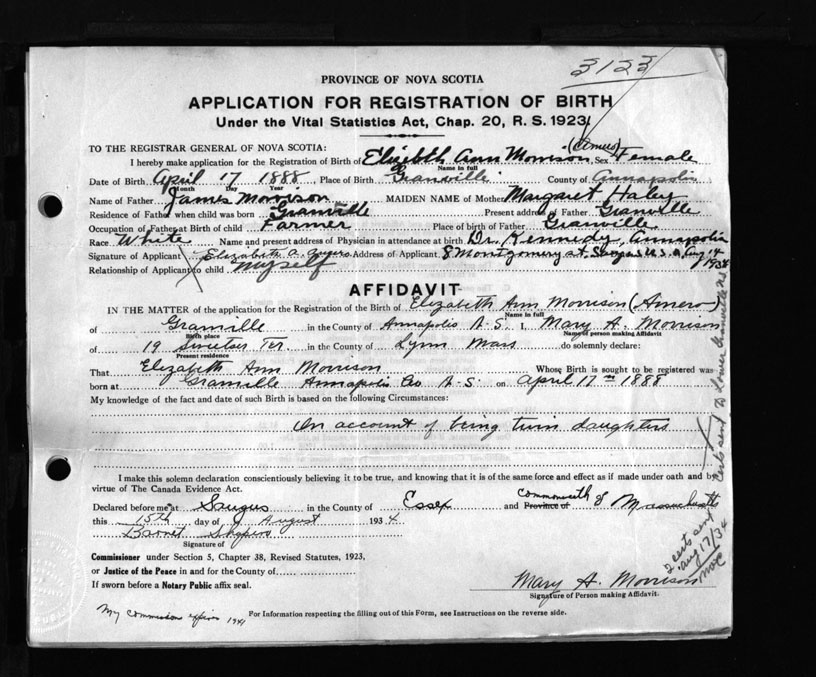 3123
PROVINCE OF NOVA SCOTIA
APPLICATION FOR REGISTRATION OF BIRTH
Under the Vital Statistics Act, Chap. 20, R. S. 1923.
TO THE REGISTRAR GENERAL OF NOVA SCOTIA:
I hereby make application for the Registration of Birth of Elizabeth Ann Morrison Sex Female
Name in full
Date of Birth April 17 1888 Place of Birth Granville County of Annapolis
Month Day Year
Name of Father James Morrison MAIDEN NAME of Mother Margaret Haley
Residence of Father when child was born Granville Present address of Father Granville
Occupation of Father at Birth of child Farmer Place of birth of Father Granville
Race White Name and present address of Physician in attendance at birth Dr. Kennedy, Annapolis
Signature of Applicant Elizabeth A. Address of Applicant 8 Montgomery st. U.S.A. Aug 14
1934
Relationship of Applicant to child Myself
AFFIDAVIT
IN THE MATTER of the application for the Registration of the Birth of Elizabeth Ann Morrison (Amero)
Name in full
of Granville in the County of Annapolis N.S. I, Mary A. Morrison
Birth place Name of person making Affidavit
of 19 Sweetser Ter. in the County of Lynn Mass do solemnly declare:
Present residence
That Elizabeth Ann Morrison Whose Birth is sought to be registered was
born at Granville Annapolis Co N.S. on April 17th 1888
My knowledge of the fact and date of such Birth is based on the following Circumstances:
On account of being twin daughters
I make this solemn declaration conscientiously believing it to be true, and knowing that it is of the same force and effect as if made under oath and by
virtue of The Canada Evidence Act.
Declared before me at Saugus in the County of Essex and Province of Commonwealth of Massachusetts
this 15th day of August 1934
Barnet Shapiro
Signature of
Commissioner under Section 5, Chapter 38, Revised Statutes, 1923,
or Justice of the Peace in and for the County of
If sworn before a Notary Public affix seal.
Mary A. Morrison
Signature of Person making Affidavit.
My commission expires 1941
For Information respecting the filling out of this Form, see Instructions on the reverse side.
Certs sent to Lower Granville NS
2 certs sent
Aug 17/34